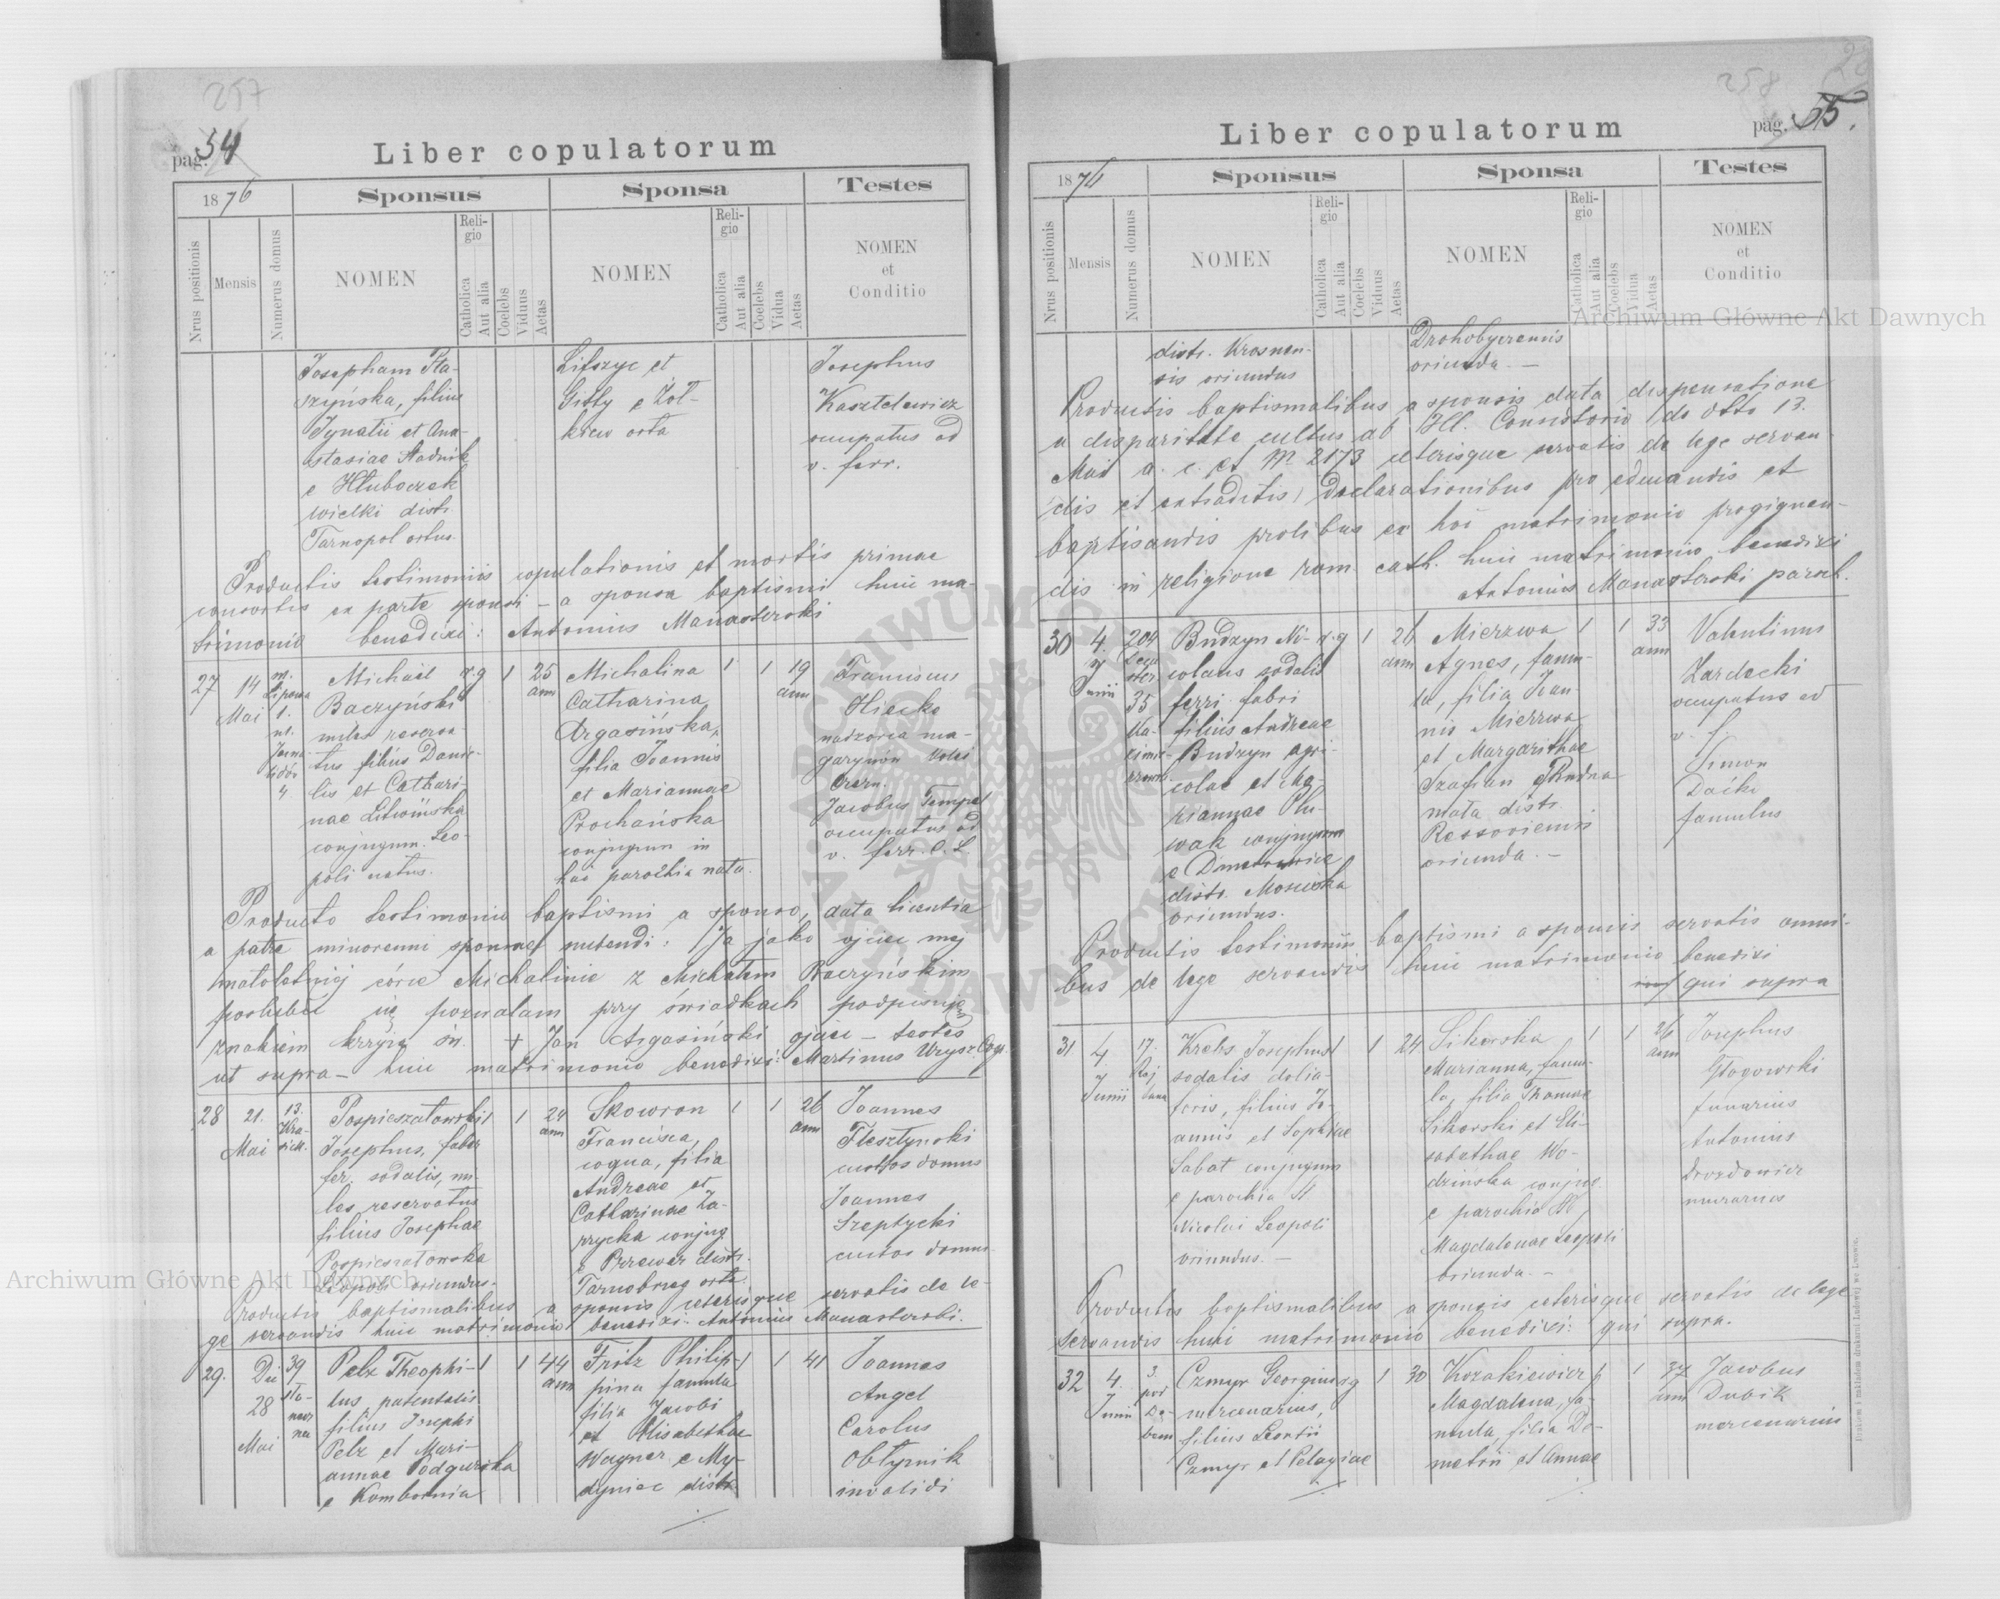 257
pag. 54
Liber copulatorum
1876
Sponsus
Sponsa
Testes
Nrus positionis
Mensis
Numerus domus
NOMEN
Religio
Catholica
Aut alia
Coelebs
Viduus
Aetas
NOMEN
Religio
Catholica
Aut alia
Coelebs
Vidua
Aetas
NOMEN
et
Conditio
Josepham Sta-
szyńska, filius
Ignatii et Ana-
stasiae Stadnik
e Hłuboczek
wielki distr.
Tarnopol ortus
Lifszyc et
Gitly e Żoł-
kiew orta
Josephus
Kasztelewicz
occupatus ad
v. ferr.
Productis testimoniis copulationis et mortis primae
consortis ex parte sponsi – a sponsa baptismi huic ma-
trimonio benedixi: Antonius Manasterski
27
14
Mai
Michael
Baczyński
miles reserva-
tus filius Danie-
lis et Cathari-
nae Litwińska
conjugum Leo-
poli natus.
r.g
1
25
ann
Michalina
Catharina
Argasińska,
filia Joannis
et Mariannae
Prochańska
conjugum in
hac parochia nata
1
1
19
ann
Franciscus
Hlecko
nadzorca ma-
gazynów kolei
Czern.
Jacobus Tempel
occupatus ad
v. ferr. C. L.
Producto testimonio baptismi a sponso, data licentia
a patre minorenni sponsae nubendi: Ja jako ojciec mej
małoletniej córce Michalinie z Michałem Baczyńskim
poslubić się pozwalam przy świadkach podpisuję
znakiem krzyża św. + Jan Argasiński ojciec – testes
ut supra – huic matrimonio benedixi: Martinus Urysz Coop.
28
21.
Mai
13.
Kra-
sick.
Pospieszałowski
Josephus, faber
fer. sodalis, mi-
les reservatus
filius Josephae
Pospieszałowska
Leopoli oriundus
1
1
24
ann
Skowron
Francisca,
coqua, filia
Andreae et
Catharinae Za-
prycka conjug
e Przewóz distr.
Tarnobrzeg orta
1
1
26
ann
Joannes
Flesztynski
custos domus
Joannes
Szeptycki
custos domus
Productis baptismalibus a sponsis ceterisque servatis de le-
ge servandis huic matrimonio benedixi: Antonius Manasterski.
29.
Die
28
Mai
39
Pelz Theophi-
lus, patentalis
filius Josephi
Pelz et Mari-
annae Podgurska
e Kombornia
1
1
44
ann
Fritz Philip-
pina famula
filia Jacobi
et Elisabethae
Wagner e My-
dyniec distr
1
1
41
Joannes
Angel
Carolus
Obtyrnik
invalidi
258
pag. 55.
Liber copulatorum
1876
Sponsus
Sponsa
Testes
Nrus positionis
Mensis
Numerus domus
NOMEN
Religio
Catholica
Aut alia
Coelebs
Viduus
Aetas
NOMEN
Religio
Catholica
Aut alia
Coelebs
Vidua
Aetas
NOMEN
et
Conditio
distr. Krosnen-
sis oriundus
Drohobycensis
oriunda. –
Productis baptismalibus a sponsis data dispensatione
a disparitate cultus ab Ill. Consistorio de dtto 13.
Mai a. c. et N 2173 ceterisque servatis de lege servan-
dis et extraditis declarationibus pro educandis et
baptisandis prolibus ex hoc matrimonio progignen-
dis in religione rom. cath. huic matrimonio benedixi
Antonius Manasterski paroch.
30
4.
Junii
204
35
Budzyn Ni-
colaus sodalis
ferri fabri
filius Andreae
Budzyn agri-
colae et Ma-
riannae Plu-
wak conjugum
e Dmitrowice
distr. Mosciska
oriundus.
r.g
1
26
ann
Mierzwa
Agnes, famu-
la, filia Joan-
nis Mierzwa
et Margarithae
Szafran e Rudna
mała distr.
Ressoviensis
oriunda. –
1
1
33
ann
Valentinus
Zardecki
occupatus ad
v. f.
Simon
Daćko
famulus
Productis testimoniis baptismi a sponsis servatis omni-
bus de lege servandis huic matrimonio benedixi
qui supra
31
4
Junii
17.
Krebs Josephus
sodalis dolia-
toris, filius Jo-
annis et Sophiae
Sabat conjugum
e parochia St
Nicolai Leopoli
oriundus. –
1
1
24
Sikorska
Marianna, famu-
la, filia Thomae
Sikorski et Eli-
sabethae Wo-
dzinska conjug
e parochia St
Magdalenae Leopoli
oriunda. –
1
1
26
ann
Josephus
Głogowski
funarius
Antonius
Drozdowicz
murarius
Productis baptismalibus a sponsis ceterisque servatis de lege
servandis huic matrimonio benedixi: qui supra.
32
4.
Junii
3.
pod
Dę-
bem
Czmyr Georgius
mercenarius,
filius Leontii
Czmyr et Pelagiae
r.g
1
30
Kozakiewicz
Magdalena, fa-
mula, filia De-
metrii et Annae
1
37
ann
Jacobus
Dubik
mercenarius
Drukiem i nakładem drukarni Ludowej we Lwowie.
Archiwum Główne Akt Dawnych
Archiwum Główne Akt Dawnych
ARCHIWUM GŁÓWNE AKT DAWNYCH